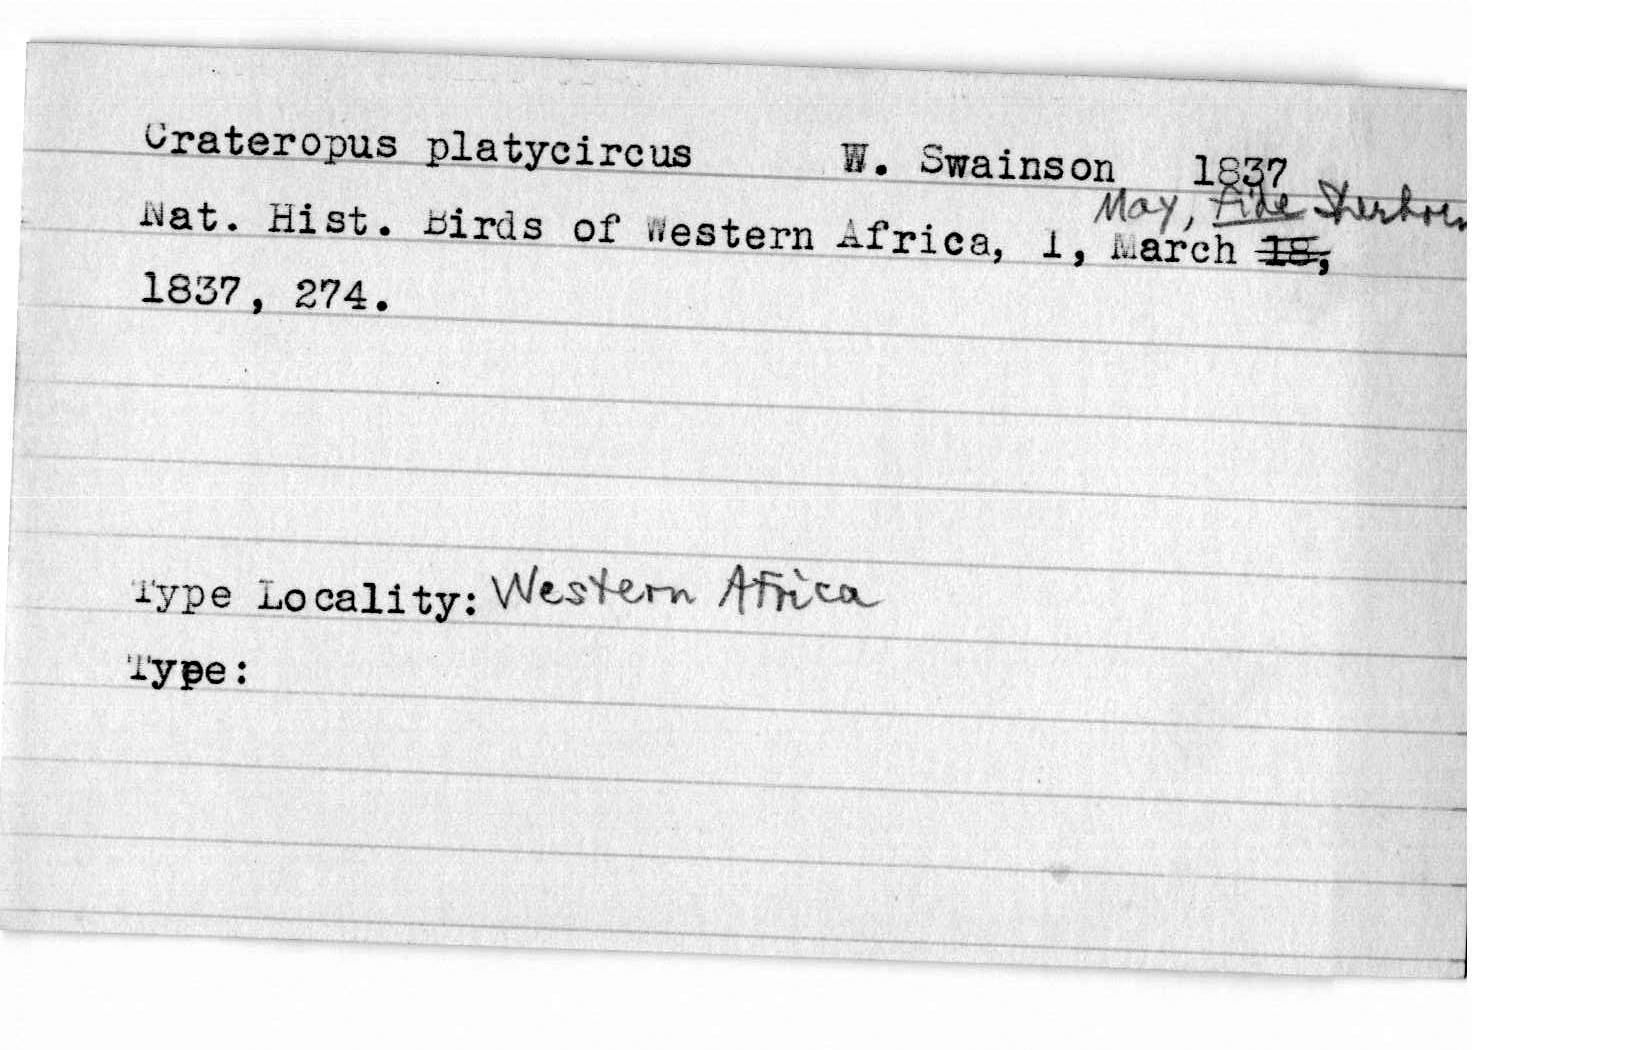 Crateropus platycircus W. Swainson 1837
May, fide Sherborn
Nat. Hist. Birds of Western Africa, 1, March 18,
1837, 274.
Type Locality: Western Africa
Type: